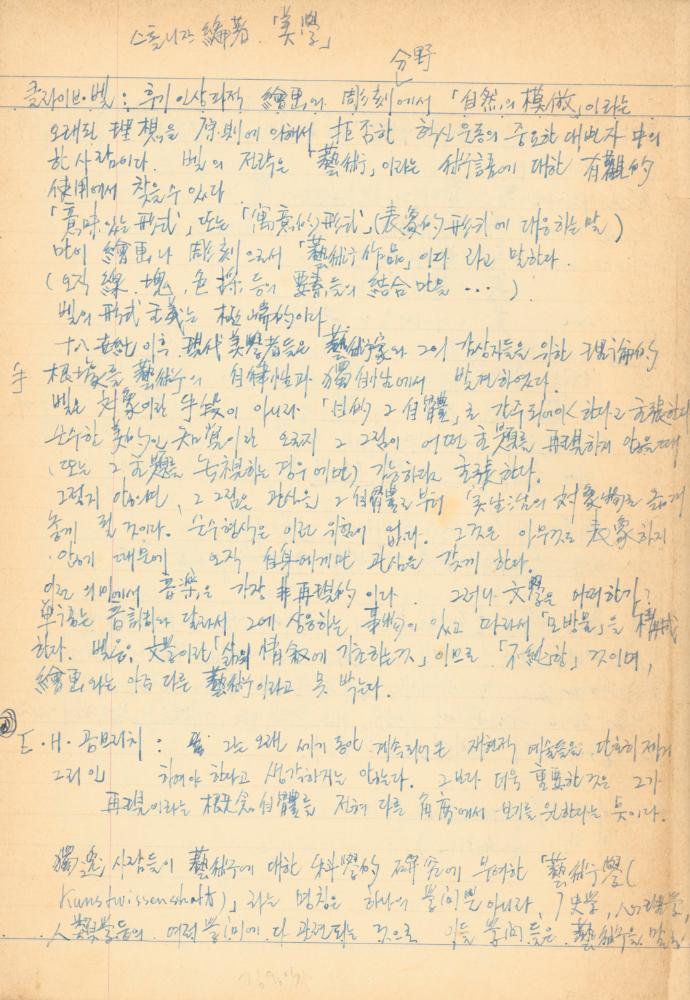 스톨니쯔 編著. 「美學」
分野
클라이브·벨 : 후기인상파적 繪畵와 彫刻에서 「自然의 模倣」이라는
오래된 理想을 原則에 의해서 拒否한 혁신운동의 중요한 대변자 中의
한 사람이다. 벨의 전략은 「藝術」이라는 術語에 대한 有觀的
使用에서 찾을 수 있다
「意味있는 形式」, 또는 「寓意的 形式」 (表象的 形式에 대응하는 말)
만이 繪畵나 彫刻으로서 「藝術作品」이다 라고 말한다.
(오직 線, 塊, 色採 등의 要素들의 結合만을 …)
벨의 形式主義는 極端的이다
十八世紀 이후 現代美學者들은 藝術家와 그의 감상자들을 위한 理論的
根據를 藝術의 自律性과 獨自性에서 발견하였다.
벨은 对象이란 手段이 아니라 「目的 그 自體」로 간주되어야 한다고 主張한다
手
순수한 美的인 知覺이란 오로지 그 그림이 어떤 主題를 再現하지 않을 때
(또는 그 主題를 무視하는 경우에만) 가능하다고 主張한다.
그렇지 않으면, 그 그림은 관심을 그 自體로부터 「실生活의 对象物로 옮겨
놓게 될 것이다. 순수형식은 이런 위험이 없다. 그것은 아무것도 表象하지
않기 때문에 오직 自身에게만 관심을 갖게 한다.
이런 의미에서 音樂은 가장 非再現的이다. 그러나 文學은 어떠한가?
単語는 音調와 달라서 그에 상응하는 事物이 있고 따라서 「모방물」을 構成
한다. 벨은, 文學이란 「삶의 情敍에 기초하는 것」이므로 「不純한」 것이며,
繪畵와는 아주 다른 藝術이라고 못 박는다.
E·H·곰브리치 : 그는 오랜 세기동안 계속되어온 재현적 예술들을 단호히 제거
그러인 하여야 한다고 생각하지는 않는다. 그보다 더욱 重要한 것은 그가
再現이라는 槪念 自體를 전혀 다른 角度에서 보기를 원한다는 뜻이다.
獨逸 사람들이 藝術에 대한 科學的 硏究에 부여한 「藝術學(
Kunstwissenshaft)」라는 명칭은 하나의 學问뿐 아니라, 歷史學, 心理學,
人類學등의 여러 學问에 다 관련되는 것으로 이들 學问들은 藝術을